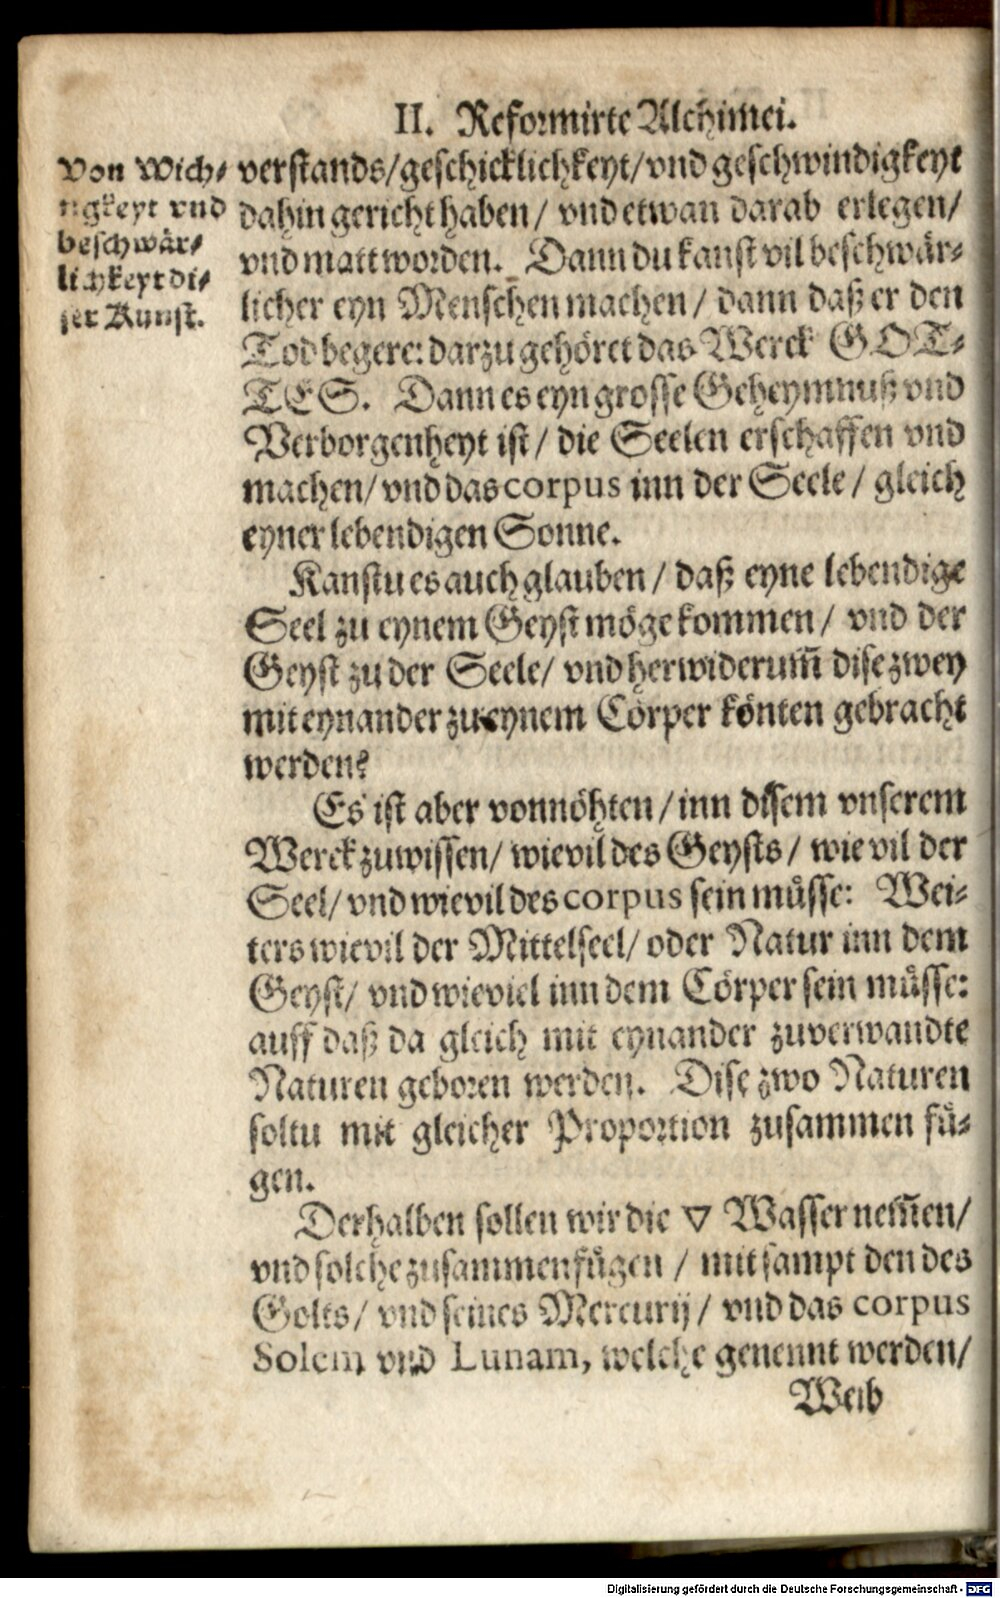 II. Reformirte Alchimei.
Von Wich-
tigkeyt vnd
beschwär-
lichkeyt di-
ser Kunst.
verstands/geschicklichkeyt/vnd geschwindigkeyt
dahin gericht haben/ vnd etwan darab erlegen/
vnd matt worden. Dann du kanst vil beschwär-
licher eyn Menschen machen/ dann daß er den
Tod begere: darzu gehöret das Werck GOT-
TES. Dann es eyn grosse Geheymnuß vnd
Verborgenheyt ist/ die Seelen erschaffen vnd
machen/ vnd das corpus inn der Seele/ gleich
eyner lebendigen Sonne.
Kanstu es auch glauben/ daß eyne lebendige
Seel zu eynem Geyst möge kommen/ vnd der
Geyst zu der Seele/ vnd herwiderum̃ dise zwey
mit eynander zu eynem Cörper könten gebracht
werden?
Es ist aber vonnöhten/ inn disem vnserem
Werck zuwissen/ wievil des Geysts/ wie vil der
Seel/ vnd wievil des corpus sein müsse: Wei-
ters wievil der Mittelseel/ oder Natur inn dem
Geyst/ vnd wieviel inn dem Cörper sein müsse:
auff daß da gleich mit eynander zuverwandte
Naturen geboren werden. Dise zwo Naturen
soltu mit gleicher Proportion zusammen fü-
gen.
Derhalben sollen wir die ▽ Wasser nem̃en/
vnd solche zusammenfügen / mit sampt den des
Golts/ vnd seines Mercurij/ vnd das corpus
Solem vnd Lunam, welche genennt werden/
Weib
Digitalisierung gefördert durch die Deutsche Forschungsgemeinschaft - DFG